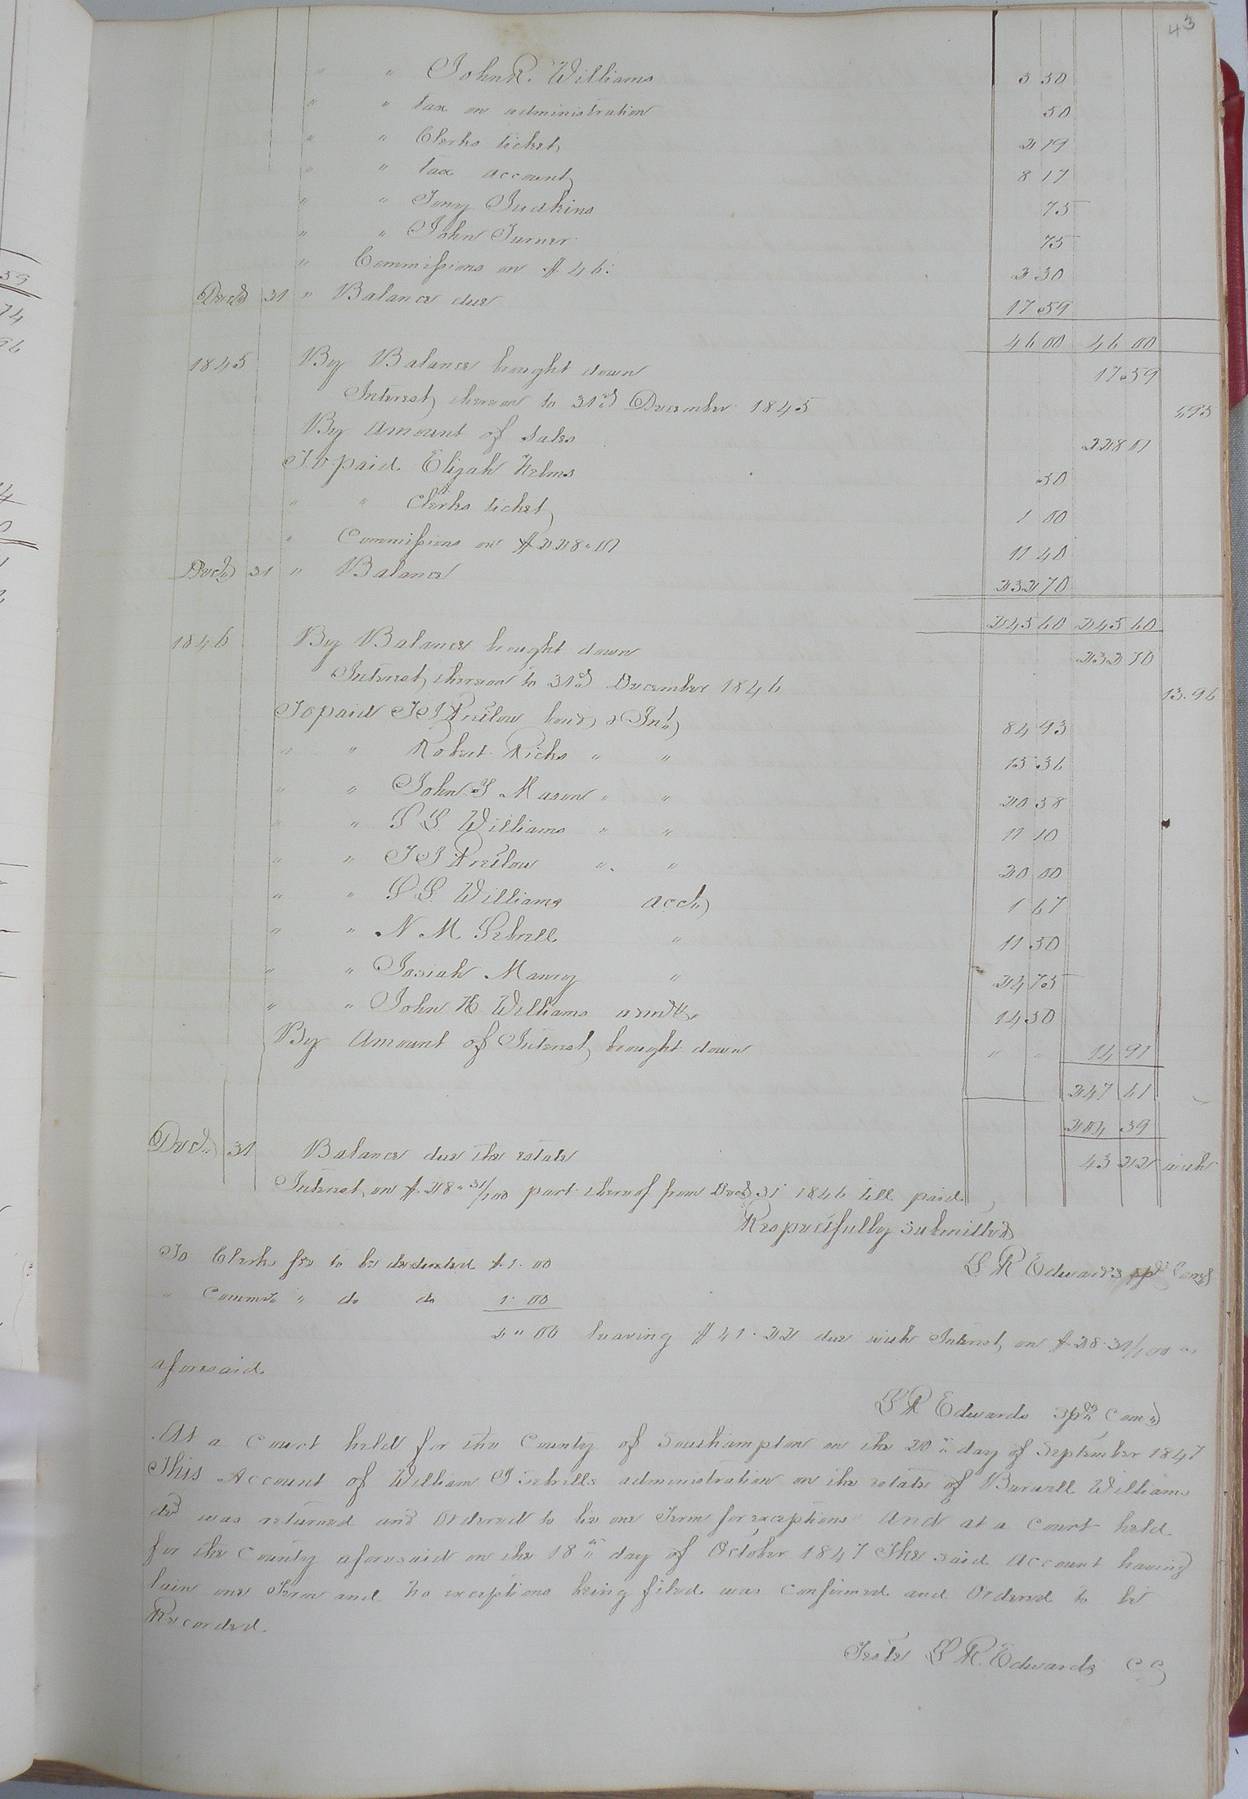 43
" " John R. Williams 3 50
" " tax on administration 50
" " Clerks ticket 2 19
" " tax account 8 17
" " Judkins 75
" " John Turner 75
" Commissions on $ 46: 2 30
Decr 31 " Balance due 17 59
46 00 46 00
1845 By Balance brought down 17 59
Interest thereon to 31st December 1845 ,95
By Amount of Sales 228 01
To paid Elijah Helms 50
" " Clerks ticket 1 00
" Commissions on $228.01 11 40
Decr 31 " Balance 232 70
245 60 245 60
1846 By Balance brought down 232 70
Interest thereon to 31st December 1846 13.96
To paid bond & Int. 84 93
" " Robert Ricks " " 15 36
" " John Y Mason " " 20 58
" " Williams " " 11 10
" " " " 20 00
" " Williams acct 1 67
" " N M Sebrell " 11 50
" " Josiah Maney " 24 75
" " John H Williams 14 50
By Amount of Interest brought down " " 14 91
247 61
204 39
Decr 31 Balance due the estate 43 22 with
Interest on $ 28 " 31/100 part thereof from Decr 31 1846 till paid
Respectfully submitted
L R Edwards spl Comr
To Clerks fee to be deducted $1.00
" Commr " do do 1.00
2 " 00 leaving $41.22 due with Interest on $28.31/100 as
aforesaid.
L R Edwards spl Comr
At a Court held for the County of Southampton on the 20th day of September 1847
This Account of William administration on the estate of Burwell Williams
decd was returned and Ordered to lie one Term for exceptions And at a Court held
for the County aforesaid on the 18th day of October 1847 The said Account having
lain one Term and no exceptions being filed was confirmed and Ordered to be
Recorded.
Teste L R. Edwards C C